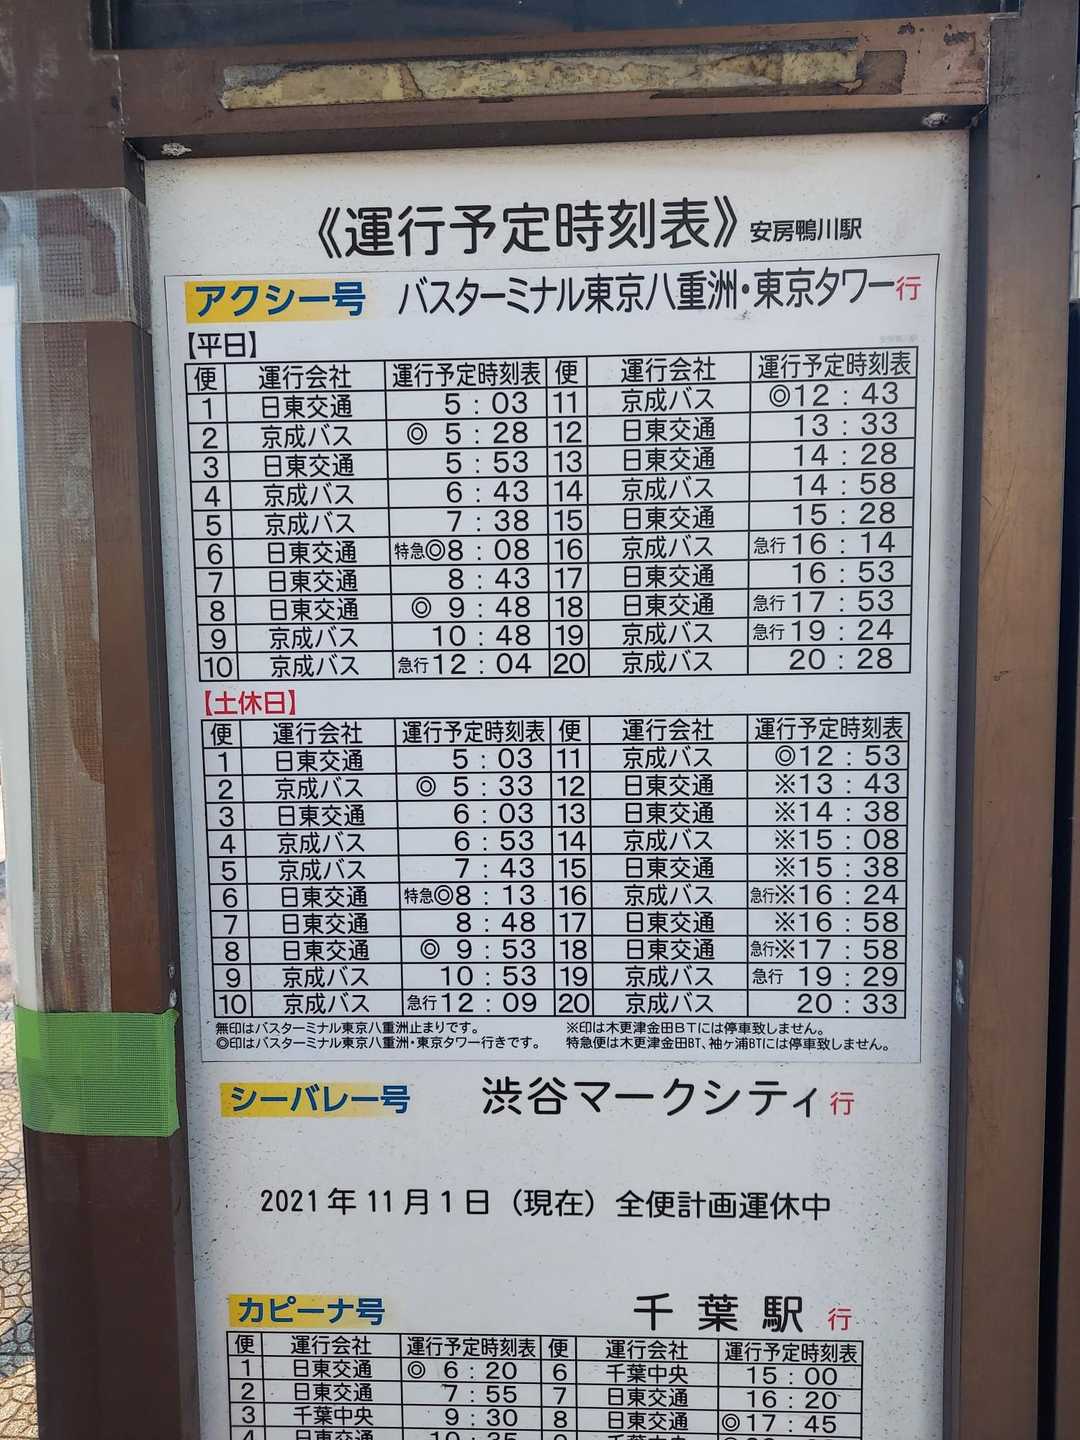 《運行予定時刻表》 安房鴨川駅
アクシー号 バスターミナル東京八重洲・東京タワー行
【平日】
便 運行会社 運行予定時刻表 便 運行会社 運行予定時刻表
1 日東交通 5:03 11 京成バス ◎12:43
2 京成バス ◎ 5:28 12 日東交通 13:33
3 日東交通 5:53 13 日東交通 14:28
4 京成バス 6:43 14 京成バス 14:58
5 京成バス 7:38 15 日東交通 15:28
6 日東交通 特急◎8:08 16 京成バス 急行 16:14
7 日東交通 8:43 17 日東交通 16:53
8 日東交通 ◎ 9:48 18 日東交通 急行 17:53
9 京成バス 10:48 19 京成バス 急行 19:24
10 京成バス 急行 12:04 20 京成バス 20:28
【土休日】
便 運行会社 運行予定時刻表 便 運行会社 運行予定時刻表
1 日東交通 5:03 11 京成バス ◎12:53
2 京成バス ◎ 5:33 12 日東交通 ※13:43
3 日東交通 6:03 13 日東交通 ※14:38
4 京成バス 6:53 14 京成バス ※15:08
5 京成バス 7:43 15 日東交通 ※15:38
6 日東交通 特急◎8:13 16 京成バス 急行※16:24
7 日東交通 8:48 17 日東交通 ※16:58
8 日東交通 ◎ 9:53 18 日東交通 急行※17:58
9 京成バス 10:53 19 京成バス 急行 19:29
10 京成バス 急行 12:09 20 京成バス 20:33
無印はバスターミナル東京八重洲止まりです。 ※印は木更津金田BTには停車致しません。
◎印はバスターミナル東京八重洲・東京タワー行きです。 特急便は木更津金田BT、袖ヶ浦BTには停車致しません。
シーバレー号 渋谷マークシティ行
2021年11月1日（現在）全便計画運休中
カピーナ号 千葉駅 行
便 運行会社 運行予定時刻表 便 運行会社 運行予定時刻表
1 日東交通 ◎ 6:20 6 千葉中央 15:00
2 日東交通 7:55 7 日東交通 16:20
3 千葉中央 9:30 8 日東交通 ◎17:45
4 日東交通